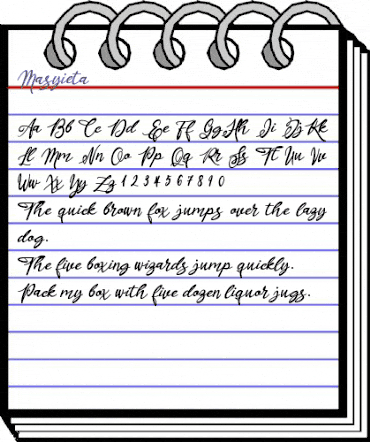 Masyieta
Aa Bb Cc Dd Ee Ff Gg Hh Ii Jj Kk
Ll Mm Nn Oo Pp Qq Rr Ss Tt Uu Vv
Ww Xx Yy Zz 1 2 3 4 5 6 7 8 9 0
The quick brown fox jumps over the lazy
dog.
The five boxing wizards jump quickly.
Pack my box with five dozen liquor jugs.